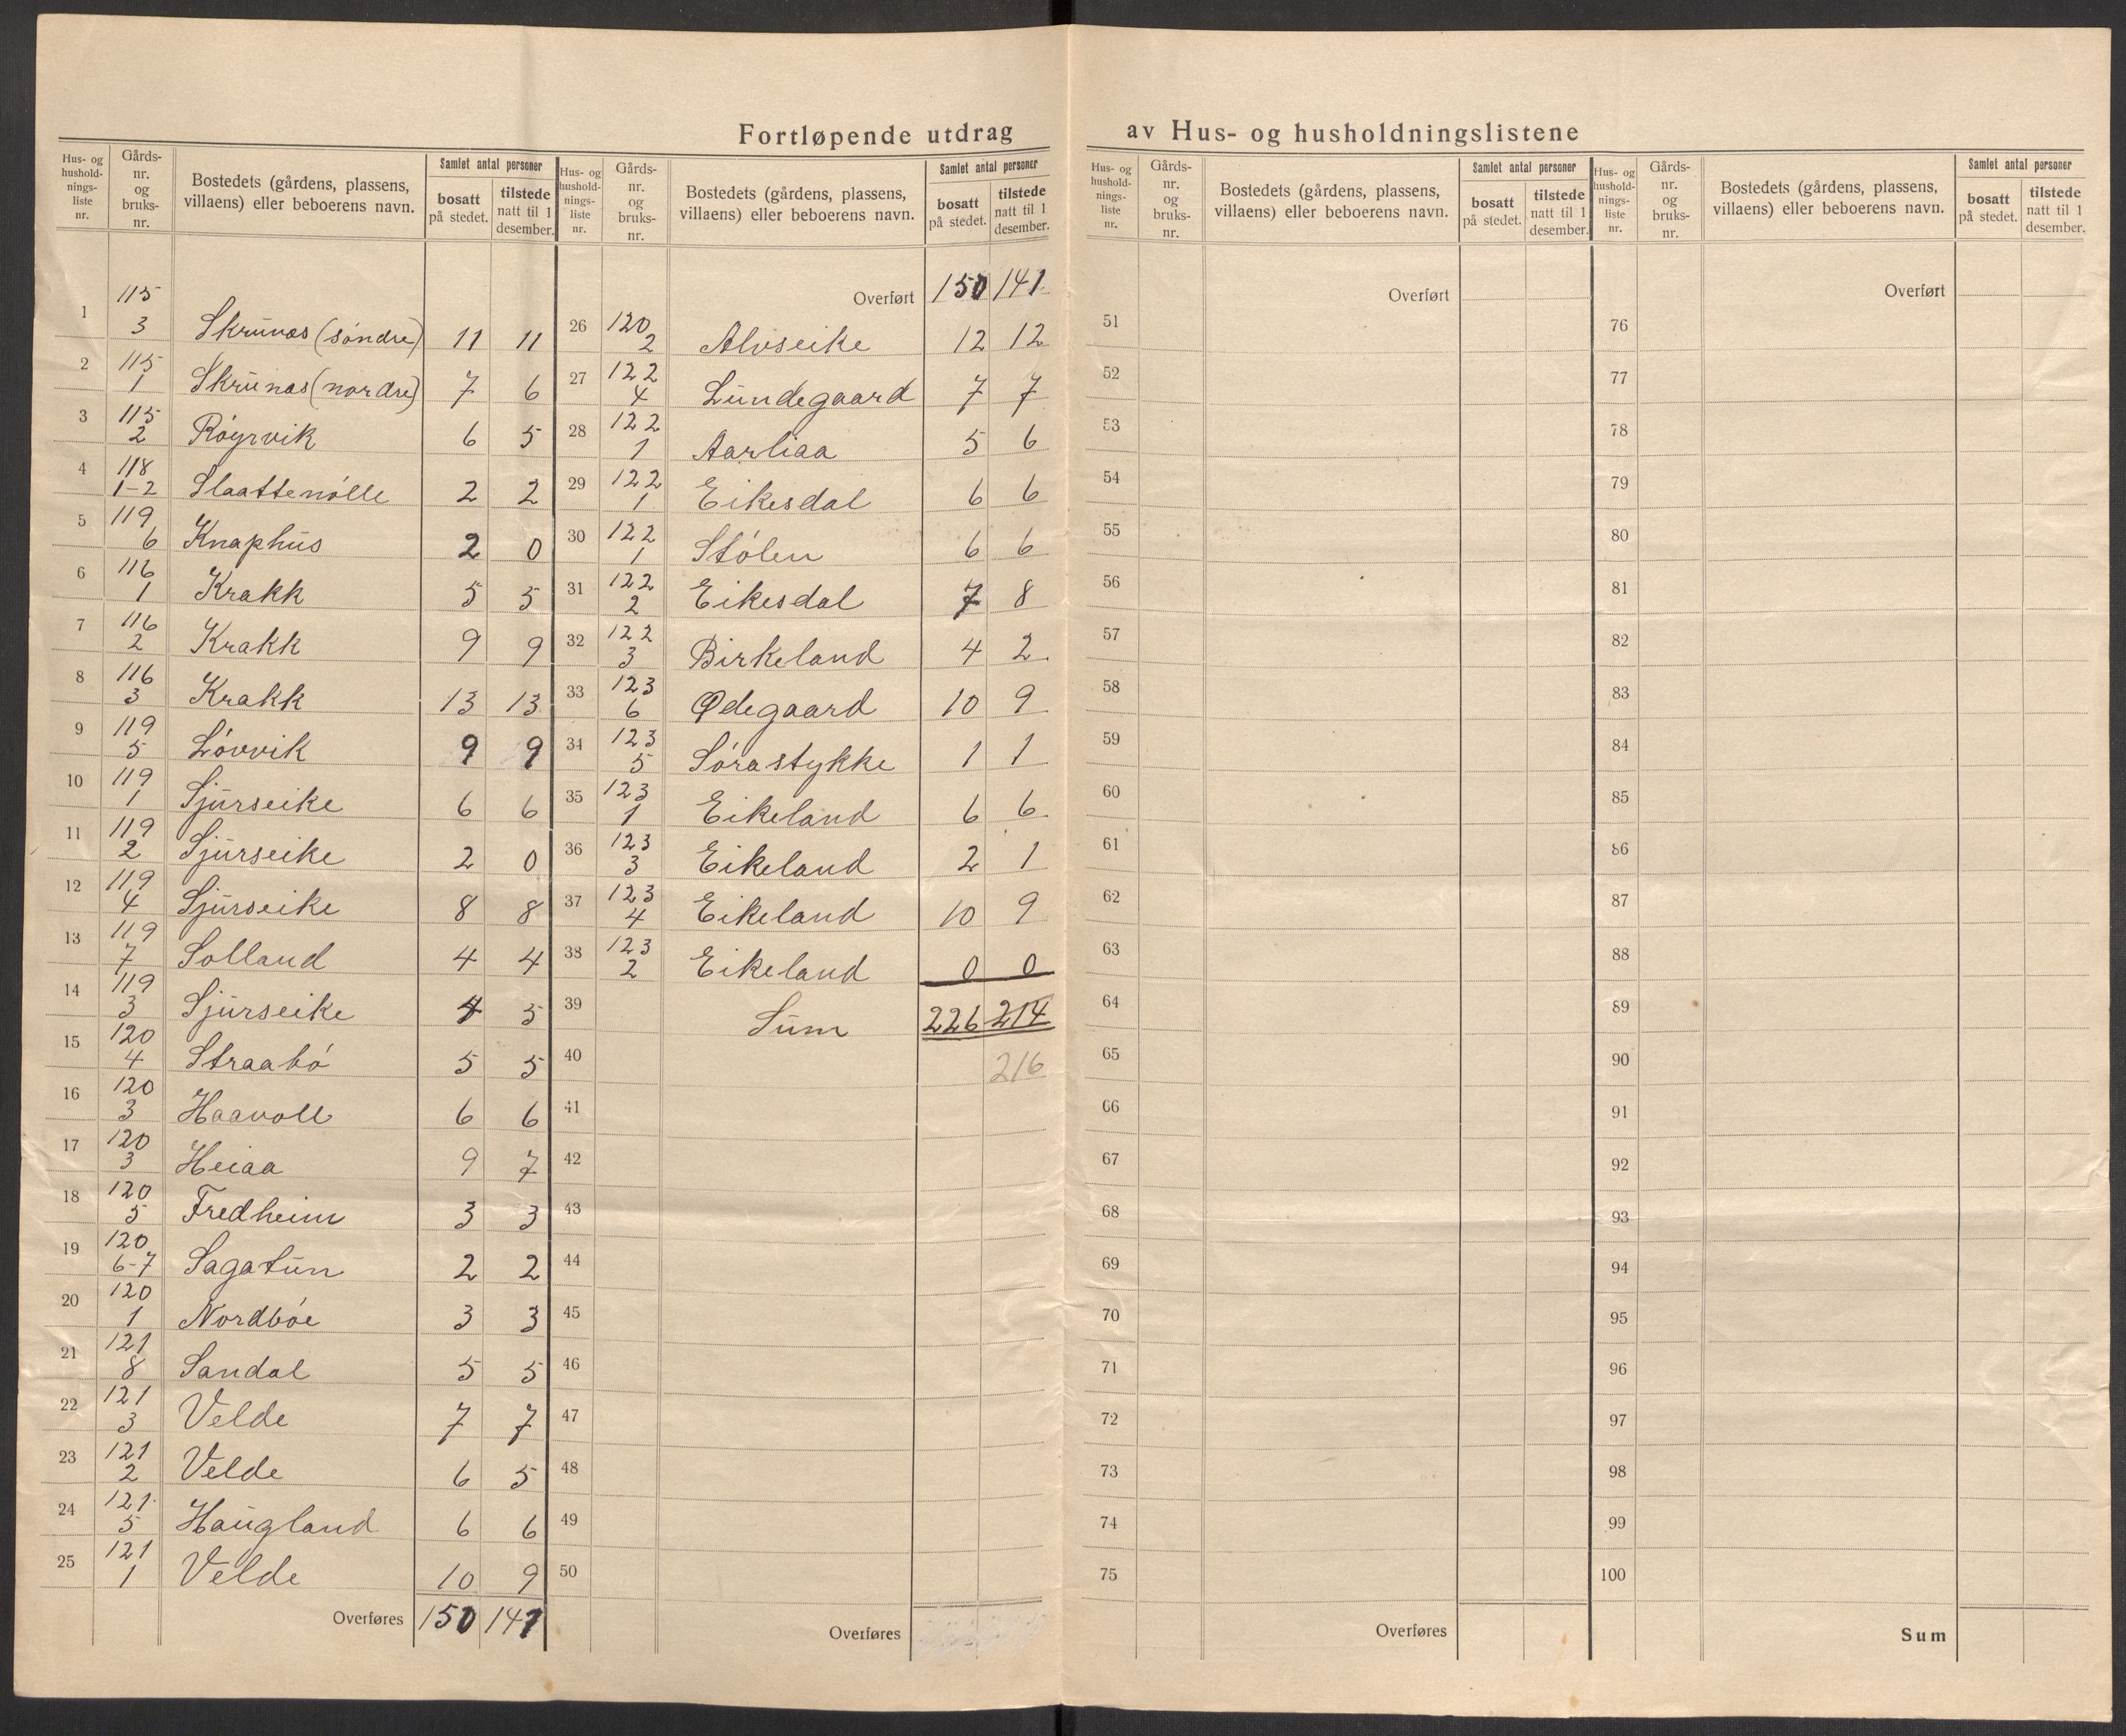 Fortløpende utdrag av Hus- og husholdningslistene
Hus- og husholdnings-liste nr. | Gårds-nr. og bruks-nr. | Bostedets (gårdens, plassens, villaens) eller beboerens navn. | Samlet antal personer bosatt på stedet. | tilstede natt til 1 desember.
1 | 115 3 | Skrunæs (søndre) | 11 | 11
2 | 115 1 | Skrunæs (nordre) | 7 | 6
3 | 115 2 | Røyrvik | 6 | 5
4 | 118 1-2 | Slaattenølle | 2 | 2
5 | 119 6 | Knaphus | 2 | 0
6 | 116 1 | Krakk | 5 | 5
7 | 116 2 | Krakk | 9 | 9
8 | 116 3 | Krakk | 13 | 13
9 | 119 5 | Løvvik | 9 | 9
10 | 119 1 | Sjurseike | 6 | 6
11 | 119 2 | Sjurseike | 2 | 0
12 | 119 4 | Sjurseike | 8 | 8
13 | 119 7 | Solland | 4 | 4
14 | 119 3 | Sjurseike | 4 | 5
15 | 120 4 | Straabø | 5 | 5
16 | 120 3 | Haavoll | 6 | 6
17 | 120 3 | Heiaa | 9 | 7
18 | 120 5 | Fredheim | 3 | 3
19 | 120 6-7 | Sagatun | 2 | 2
20 | 120 1 | Nordbøe | 3 | 3
21 | 121 8 | Sandal | 5 | 5
22 | 121 3 | Velde | 7 | 7
23 | 121 2 | Velde | 6 | 5
24 | 121 5 | Haugland | 6 | 6
25 | 121 1 | Velde | 10 | 9
Overføres | 150 | 141
Hus- og husholdnings-liste nr. | Gårds-nr. og bruks-nr. | Bostedets (gårdens, plassens, villaens) eller beboerens navn. | Samlet antal personer bosatt på stedet. | tilstede natt til 1 desember.
Overført | 150 | 141
26 | 120 2 | Alvseike | 12 | 12
27 | 122 4 | Lundegaard | 7 | 7
28 | 122 1 | Aarliaa | 5 | 6
29 | 122 1 | Eikesdal | 6 | 6
30 | 122 1 | Stølen | 6 | 6
31 | 122 2 | Eikesdal | 7 | 8
32 | 122 3 | Birkeland | 4 | 2
33 | 123 6 | Ødegaard | 10 | 9
34 | 123 5 | Sørastykke | 1 | 1
35 | 123 1 | Eikeland | 6 | 6
36 | 123 3 | Eikeland | 2 | 1
37 | 123 4 | Eikeland | 10 | 9
38 | 123 2 | Eikeland | 0 | 0
39 | Sum | 226 | 214
40 | 216
41
42
43
44
45
46
47
48
49
50
Overføres
Hus- og husholdnings-liste nr. | Gårds-nr. og bruks-nr. | Bostedets (gårdens, plassens, villaens) eller beboerens navn. | Samlet antal personer bosatt på stedet. | tilstede natt til 1 desember.
Overført
51
52
53
54
55
56
57
58
59
60
61
62
63
64
65
66
67
68
69
70
71
72
73
74
75
Overføres
Hus- og husholdnings-liste nr. | Gårds-nr. og bruks-nr. | Bostedets (gårdens, plassens, villaens) eller beboerens navn. | Samlet antal personer bosatt på stedet. | tilstede natt til 1 desember.
Overført
76
77
78
79
80
81
82
83
84
85
86
87
88
89
90
91
92
93
94
95
96
97
98
99
100
Sum